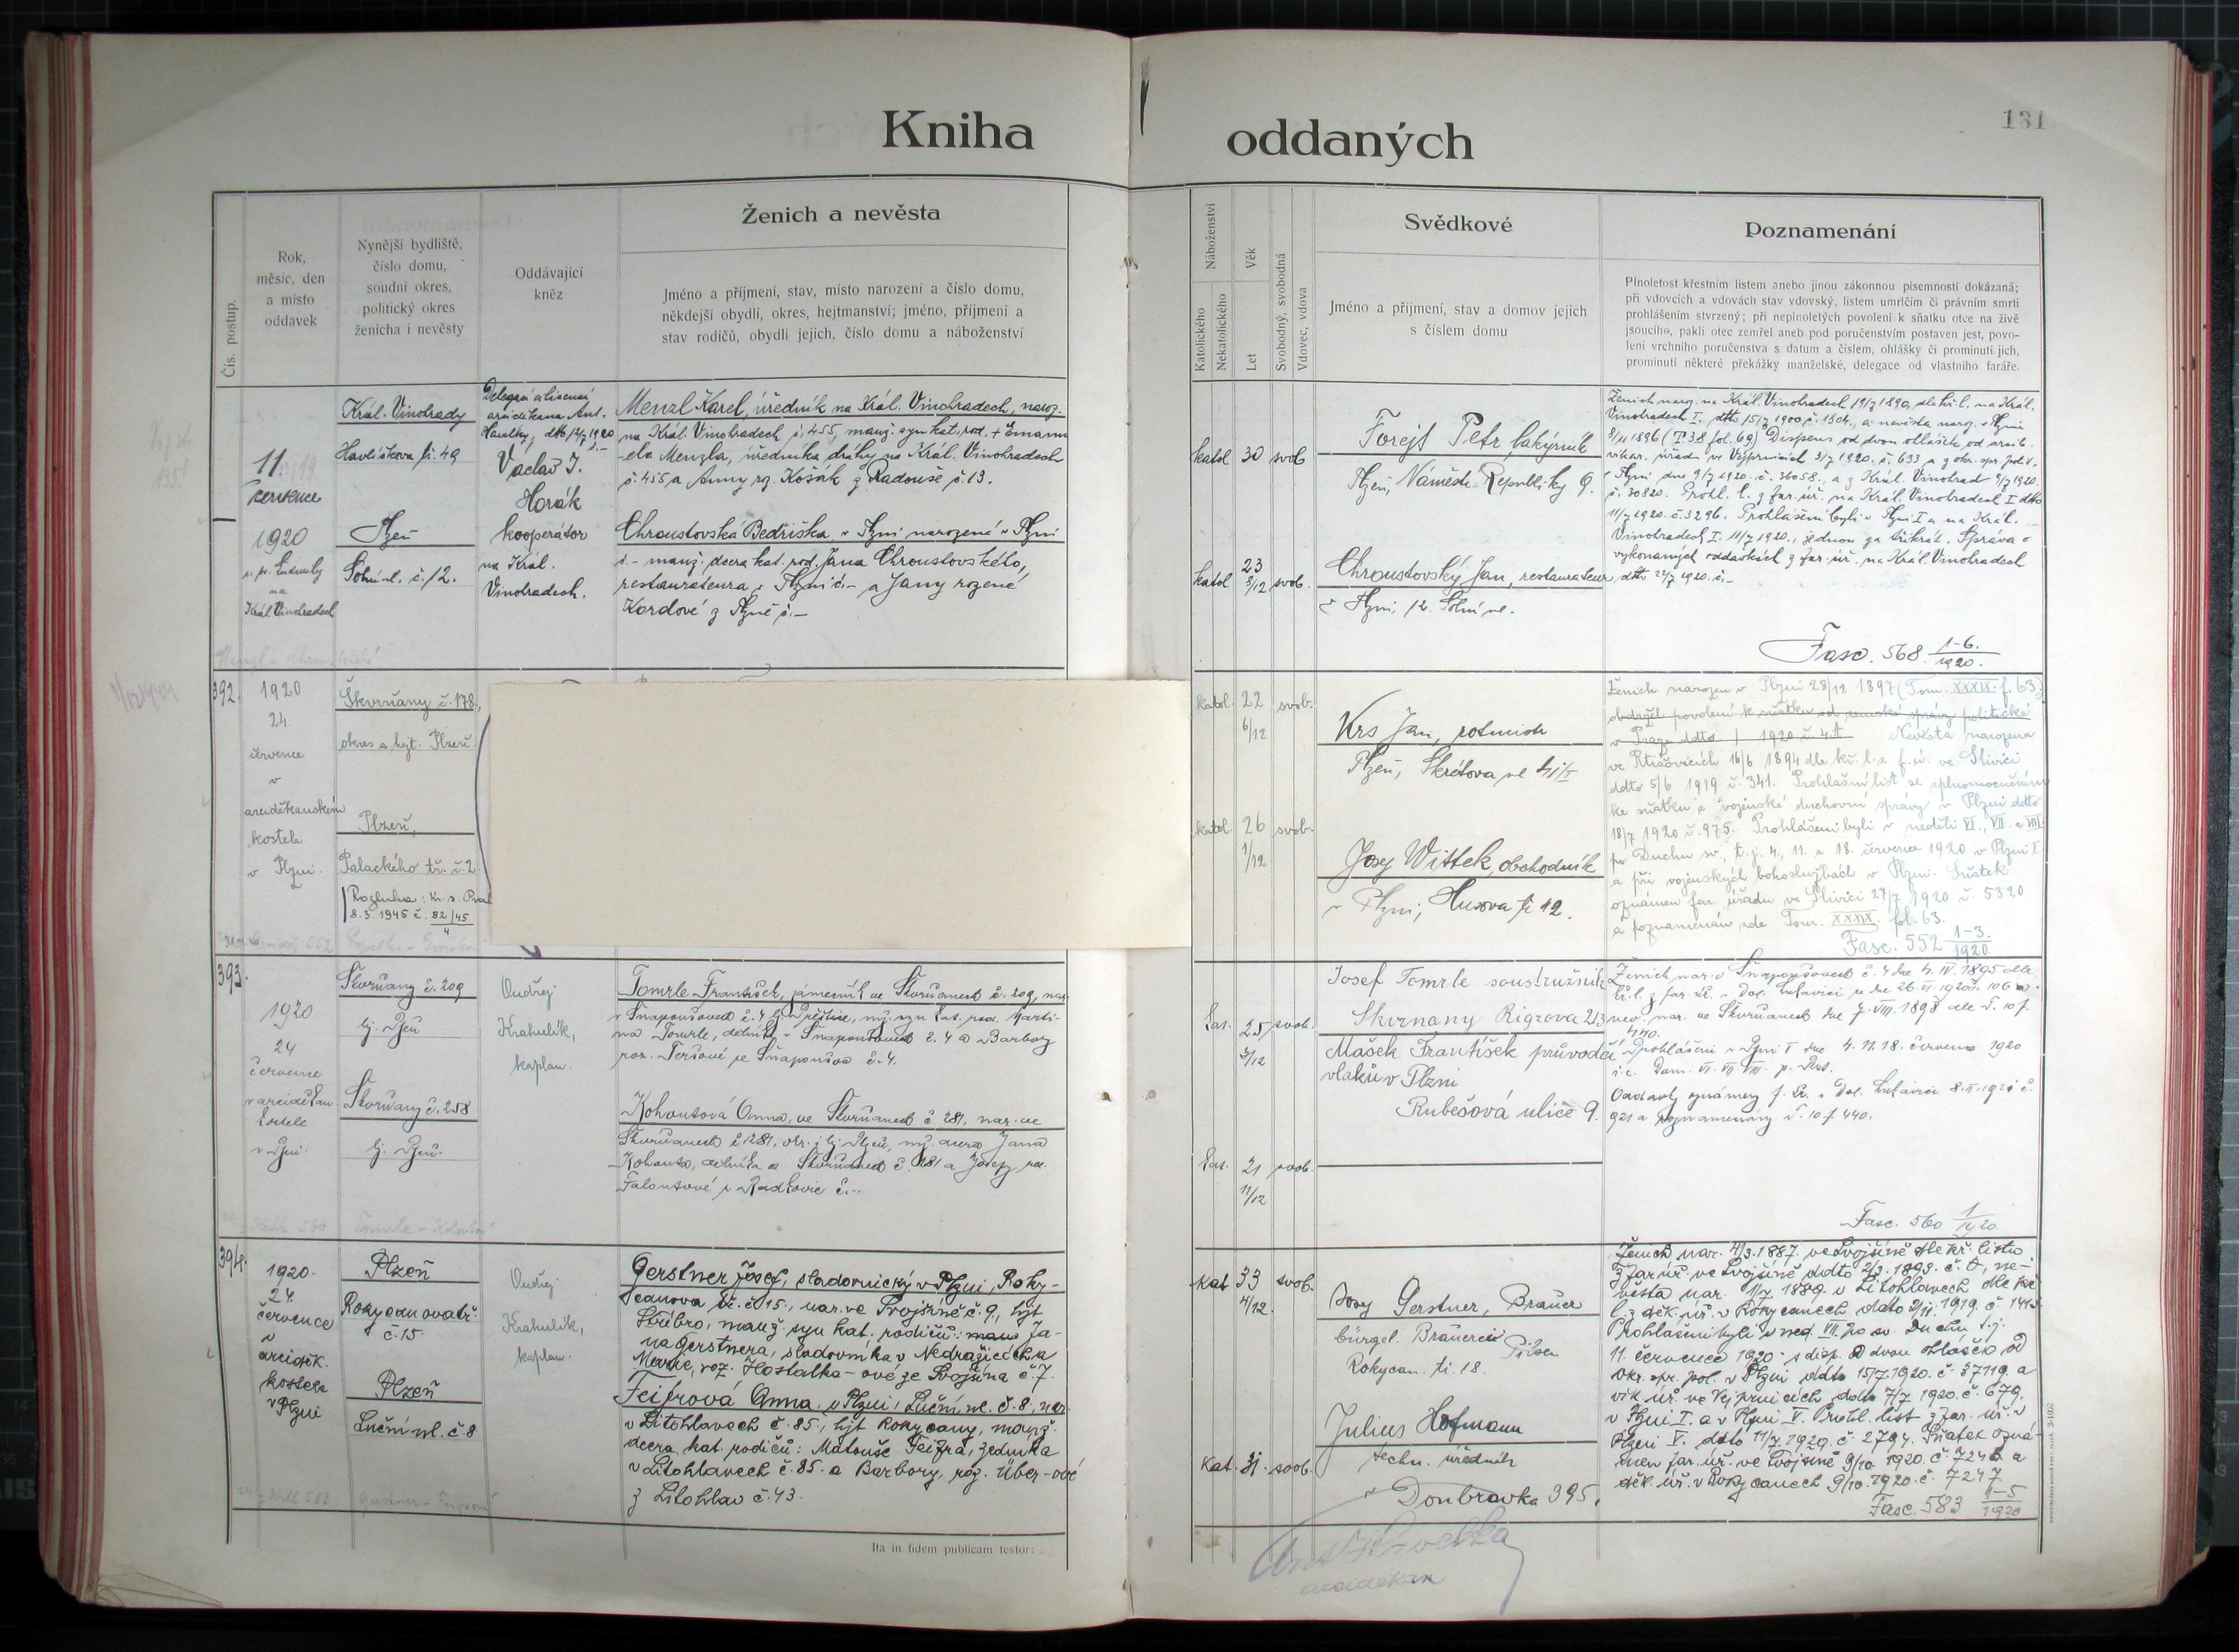 Kniha
oddaných
131
Čís. postup.
Rok,
měsíc, den
a místo
oddavek
Nynější bydliště,
číslo domu,
soudní okres,
politický okres
ženicha i nevěsty
Oddávající
kněz
Ženich a nevěsta
Jméno a příjmení, stav, místo narození a číslo domu,
někdejší obydlí, okres, hejtmanství; jméno, příjmení a
stav rodičů, obydlí jejich, číslo domu a náboženství
Náboženství
Katolického
Nekatolického
Věk
Let
Svobodný, svobodná
Vdovec, vdova
Svědkové
Jméno a příjmení, stav a domov jejich
s číslem domu
Poznamenání
Plnoletost křestním listem anebo jinou zákonnou písemností dokázaná;
při vdovcích a vdovách stav vdovský, listem umrlčím či právním smrti
prohlášením stvrzený; při neplnoletých povolení k sňatku otce na živě
jsoucího, pakli otec zemřel aneb pod poručenstvím postaven jest, povo-
lení vrchního poručenstva s datum a číslem, ohlášky či prominutí jich,
prominutí některé překážky manželské, delegace od vlastního faráře.
11
července
1920
na
Král Vinohradech
Král. Vinohrady
Havlíčkova č. 49
Plzeň
Solní ul. č. 12.
arciděkana Ant.
Havelky, dtto 12/7 1920
Václav J.
Horák
kooperátor
na Král.
Vinohradech.
Menzl Karel, úředník na Král. Vinohradech, naroz.
na Král. Vinohradech č. 455, manž. syn kat. rod. + Emanu
-ela Menzla, úředníka dráhy na Král. Vinohradech
č. 455 a Anny roz. Košák z Radouše č. 13.
Chroustovská Bedřiška v Plzni narozená v Plzni
č. – manž. dcera kat. rod. Jana Chroustovského,
restauratéra v Plzni č. – a Jany rozené
Kordové z Plzně č. –
katol 30 svob
katol 23 8/12 svob.
Forejt Petr, lakýrník
Plzeň, Náměstí Republiky 9.
Chroustovský Jan, restaurateur
v Plzni, 12. Solní ul.
Ženich narz. na Král. Vinohradech 19/7 1890, dle kř. l. na Král.
Vinohradech I. dtto 15/7 1900 č. 1304, a nevěsta naroz. v Plzni
8/11 1896 (T 38 fol. 69) Dispens od dvou ohlášek od
vikar. úřadu ve Vejprnicích 3/7 1920 č. 633 a z okr. spr. polit.
v Plzni dne 9/7 1920. č. 36058., a z Král. Vinohrad 9/7 1920.
č. 30820. Prohl. l. z far. úř. na Král. Vinohradech I dtto
11/7 1920. č. 3296. Prohlášeni byli v Plzni I a na Král.
Vinohradech I. 11/7 1920., jednou za třikrát. Zpráva o
vykonaných oddavkách z far. úř. na Král. Vinohradech
dtto 22/7 1920. č. –
Fasc. 568. 1-6.
1920.
392.
1920
24.
července
v
arciděkanském
kostele
v Plzni.
Škvrňany č. 178.,
okres a hejt. Plzeň.
Plzeň,
Palackého tř. č. 2
Rozluka: kr. s.
8.3. 1945 č. 82/45
4
katol. 22 6/12 svob.
katol. 26 1/12 svob.
Krs Jan, rotmistr
Plzeň, Škrétova ul
Josef Wittek, obchodník
v Plzni, Husova tř. 42.
Ženich narozen v Plzni 28/12 1897 (Tom. XXXIX. f. 63.)
obdržel povolení k sňatku od zemské správy politické
v Praze ddto 1920 č. Nevěsta narozena
ve Rtišovicích 16/6 1894 dle kř. l. z f. ú. ve Slivici
ddto 5/6 1919 č. 341. Prohlašní list se splnomocněním
ke sňatku z vojenské duchovní správy v Plzni ddto
18/7 1920 č. 975. Prohlášeni byli v neděli VI., VII. a VIII.
po Duchu sv., t. j. 4., 11. a 18. července 1920 v Plzni I.
a při vojenských bohoslužbách v Plzni. Sňatek
oznámen far. úřadu ve Slivici 27/7 1920 č. 5320
a poznamenán zde Tom. XXXIX. fol. 63.
Fasc. 552 1-3.
1920
393.
1920
24
července
v arciděkan.
kostele
v Plzni.
Škvrňany č. 209
hj. Plzeň
Škvrňany č. 258
hj. Plzeň.
Ondřej
Krahulík,
kaplan.
Tomrle František, zámečník ve Škvrňanech č. 209, nar.
v Snopoušovech č. 4 hj. Přeštice, mž. syn kat. rod. Marti-
na Tomrle, dělníka v Snopoušovech č. 4 a Barbory
roz. Teršové ze Snopoušov č. 4.
Kohoutová Anna, ve Škvrňanech č. 281, nar. ve
Škvrňanech č. 281, okr. i hj. Plzeň, mž. dcera Jana
Kohouta, dělníka ve Škvrňanech č. 281 a Josefy roz.
kat. 25 3/12 svob.
kat. 21 11/12 svob.
Josef Tomrle soustružník
Skvrnany Rigrova 213
Mašek František průvodčí
vlaků v Plzni
Rubešová ulice 9.
Ženich nar. v Snopoušovech č. 4 dne 4. IV. 1895 dle
nev. nar. ve Škvrňanech dne 7. VIII. 1898 dle T. 10 f.
440.
Prohlášeni v Plzni I dne 4. 11. 18. července 1920
i. e. Dom. VI. VII. VIII. p. Pent.
921 a poznamenány T. 10 f. 440.
Fasc. 560 1
1920.
394.
1920.
24.
července
v
arciděk.
kostele
v Plzni
Plzeň
Rokycanova tř.
č. 15
Plzeň
Luční ul. č. 8
Ondřej
Krahulík,
kaplan.
Gerstner Josef, sladovnický v Plzni, Roky-
canova tř. č. 15., nar. ve Svojšíně č. 9, hjt
Stříbro, manž. syn kat. rodičů: Ja-
na Gerstnera, sladovníka v Nedražicích a
Marie, roz. Hostalka-ové ze Svojšína č. 7.
Fejfrová Anna, v Plzni, Luční ul. č. 8, nar.
v Litohlavech č. 85., hjt Rokycany, manž.
dcera kat. rodičů: Matouše Fejfra, zedníka
v Litohlavech č. 85. a Barbory, roz. Über-ové
z Litohlav č. 43.
Kat 33 4/12. svob.
Kat. 31. svob.
Josef Gerstner, Brauer
bürgel. Brauerei Pilsen
Rokycan. tř. 18.
Julius Hofmann
techn. úředník
v Doubravka 395.
Ženich nar. 4/3. 1887. ve Svojšíně dle kř. listu
z far. úř. ve Svojšíně ddto 2/3. 1899. č. 0, ne-
věsta nar. 1/7. 1889. v Litohlavech dle kř.
l. z děk. úř. v Rokycanech ddto 2/IV. 1919. č. 1413.
Prohlášeni byli v ned. VII. po sv. Duchu t. j.
11. července 1920 s disp. od dvou ohlášek od
okr. spr. pol. v Plzni ddto 15/7. 1920. č. 37119. a
vik. úř. ve Vejprnicích ddto 7/7 1920. č. 679,
v Plzni I. a v Plzni V. Prohl. list z far. úř. v
Plzni V. ddto 11/7. 1920. č. 2794. Sňatek ozná-
men far. úř. ve Svojšíně 9/10. 1920. č. 7246 a
děk. úř. v Rokycanech 9/10. 1920. č. 7247
Fasc. 583 1-5
1920
Ita in fidem publicam testor:
Ant. Havelka
arciděkan